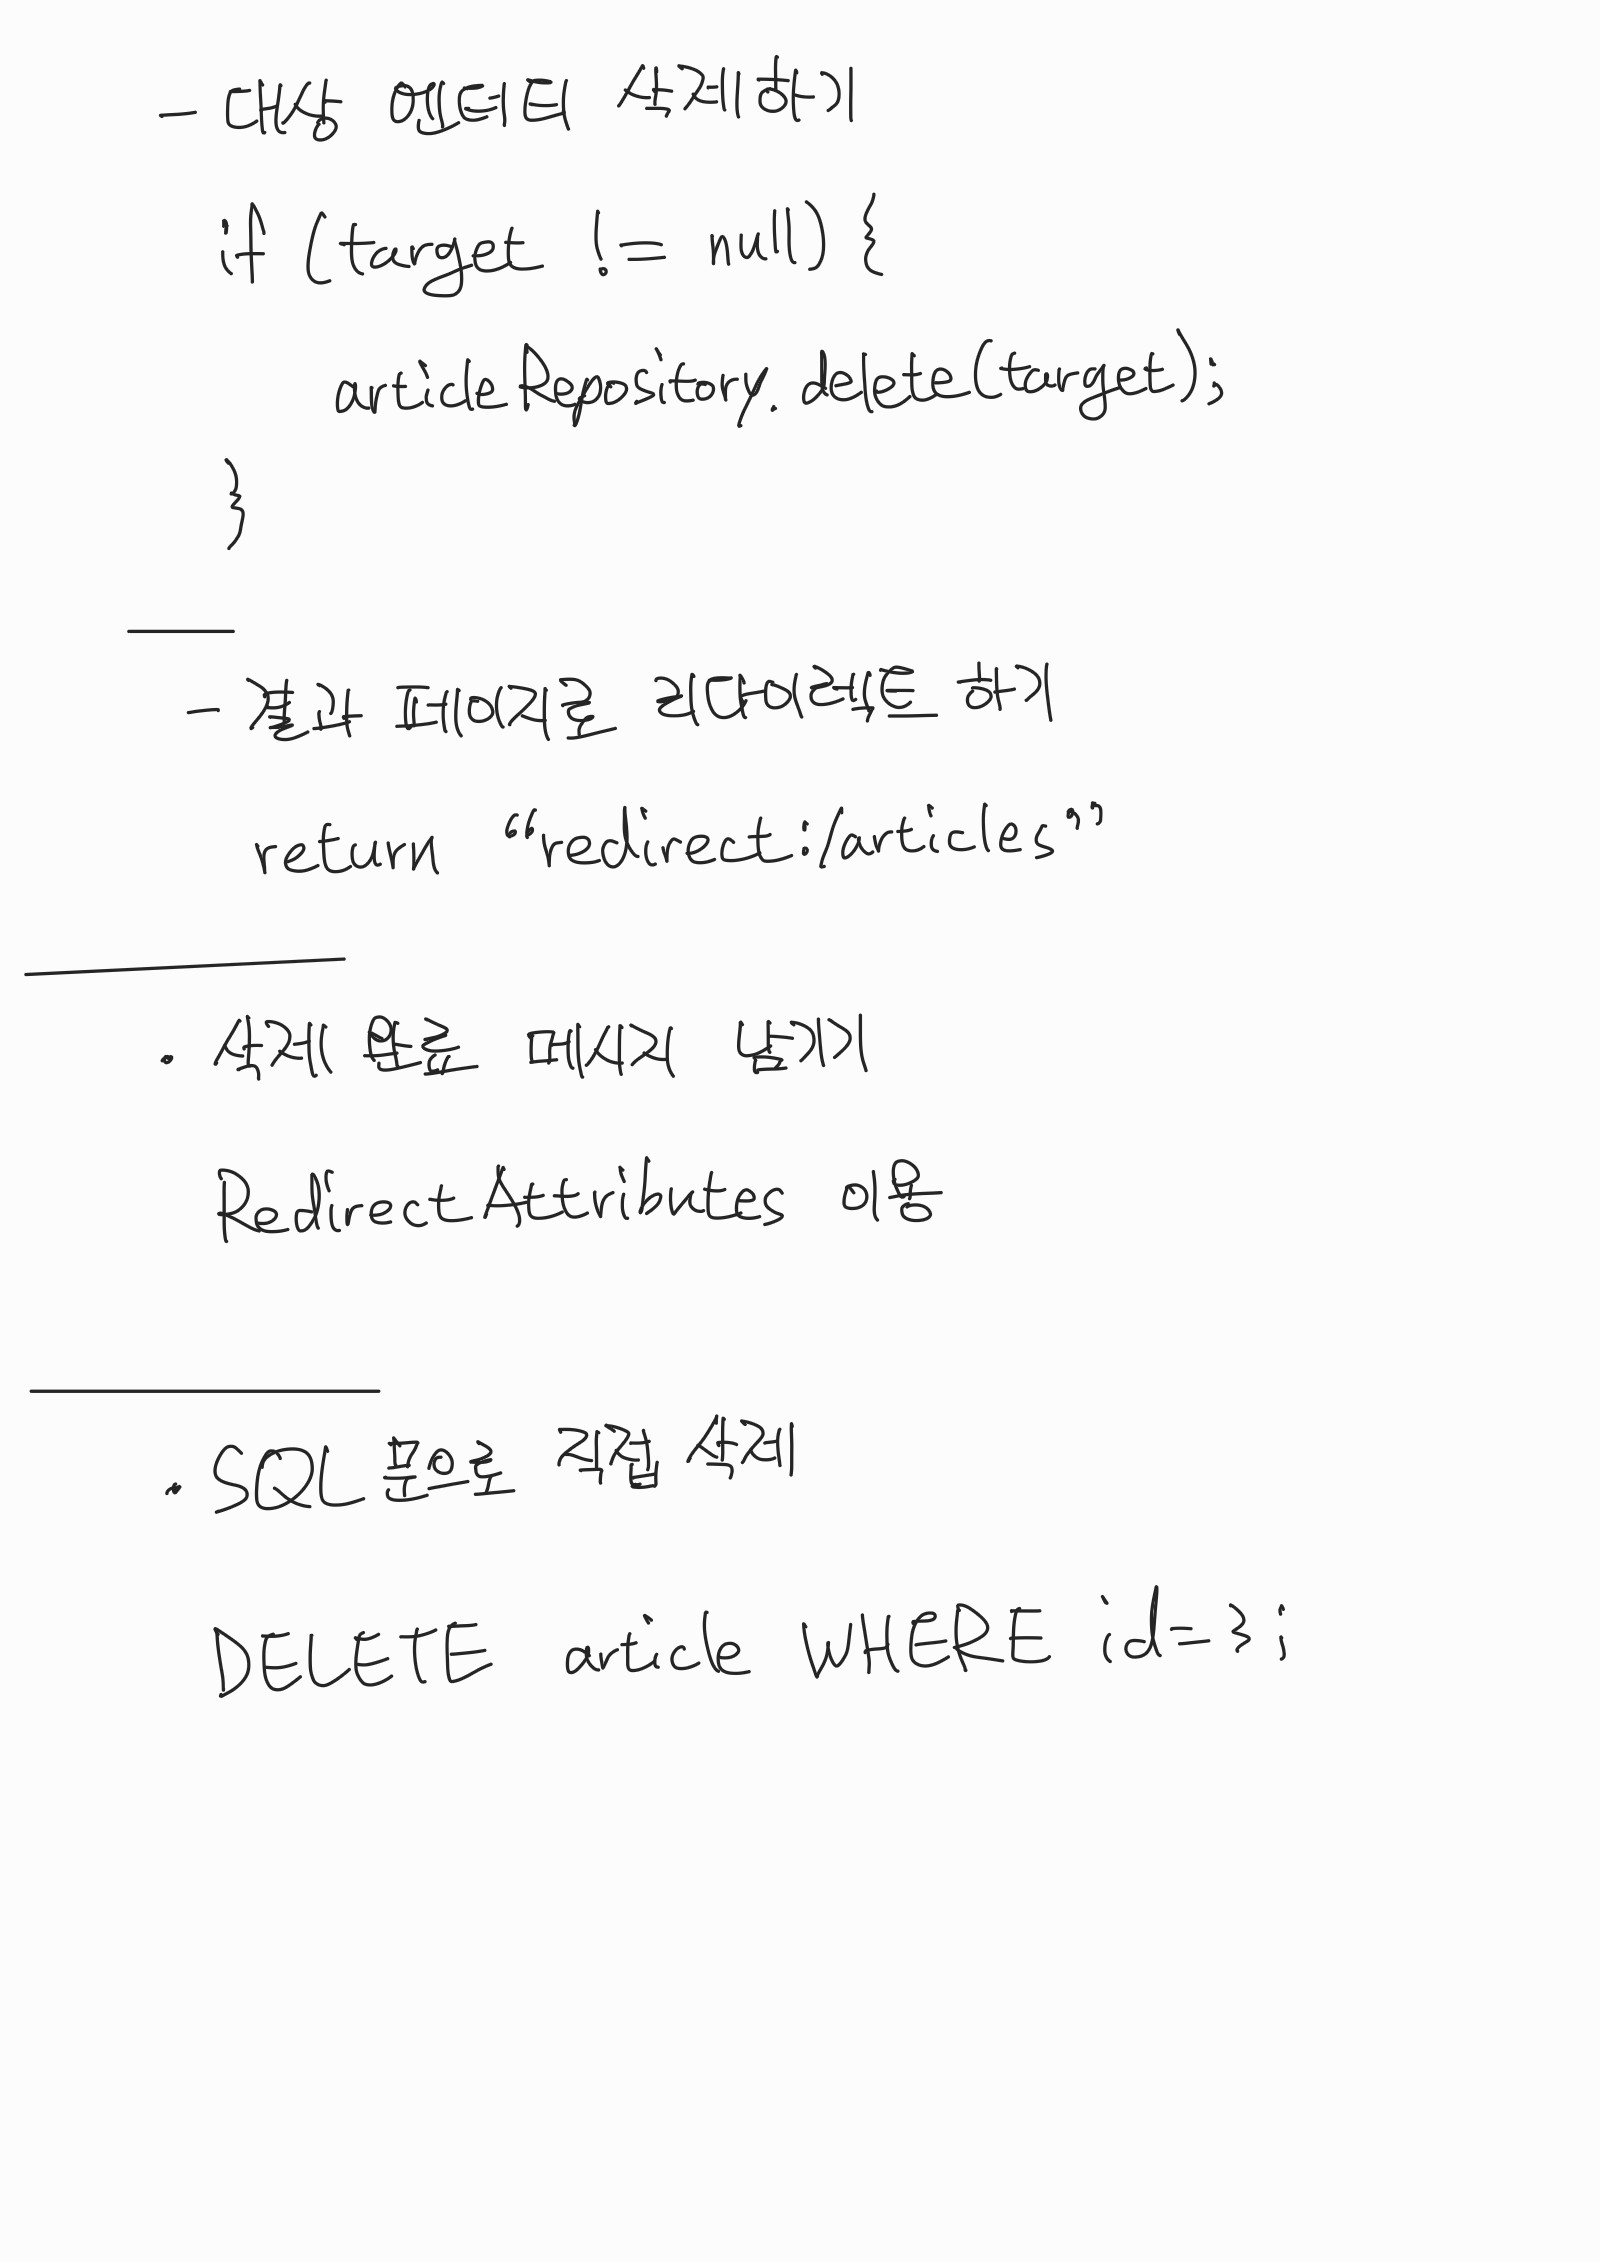 - 대상 엔터티 삭제하기
if (target != null) {
articleRepository.delete(target);
}
- 결과 페이지로 리다이렉트 하기
return “redirect:/articles”
• 삭제 완료 메시지 남기기
RedirectAttributes 이용
• SQL문으로 직접 삭제
DELETE article WHERE id=3;